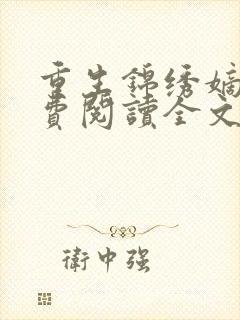 重生錦绣嫡
費閱讀全文
衛中強